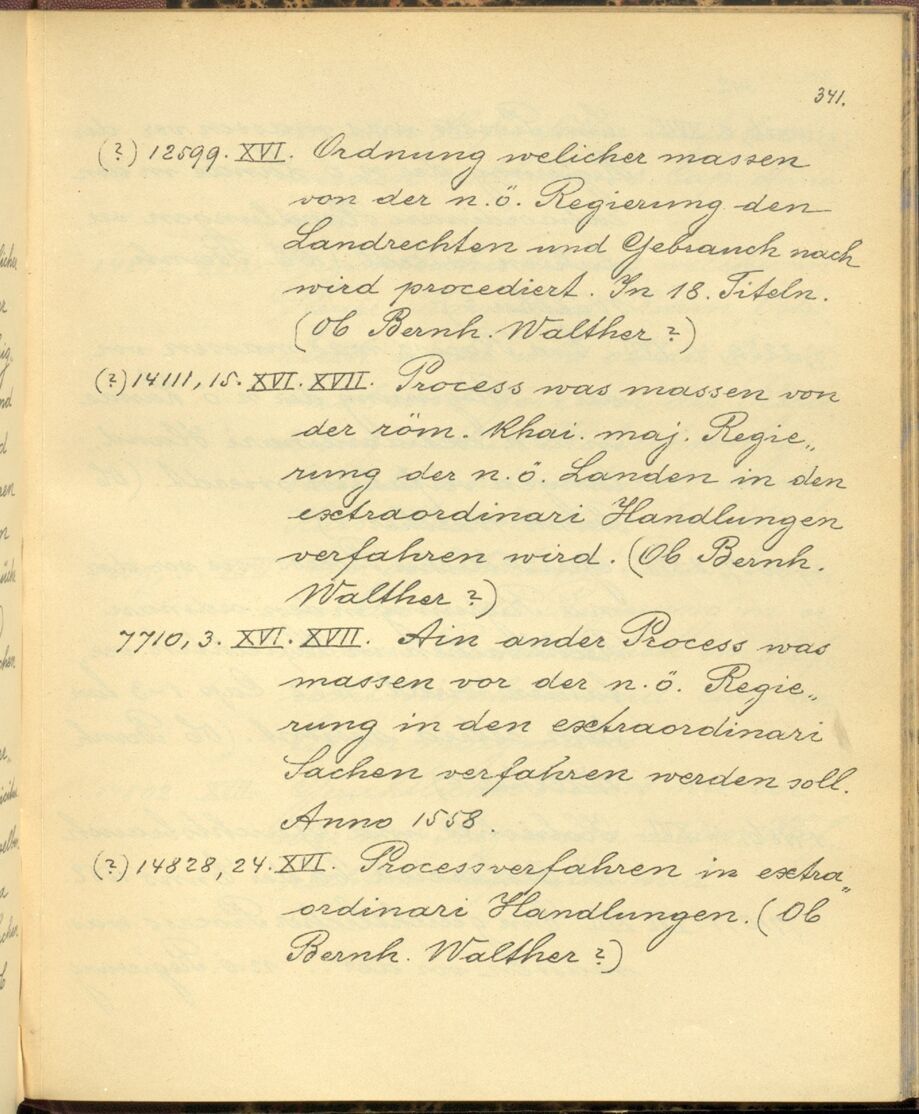 341.
(?) 12599. XVI. Ordnung welicher massen
von der n. ö. Regierung den
Landrechten und Gebrauch nach
wird procediert. In 18. Titeln.
(Ob Bernh. Walther?)
(?) 14111, 15. XVI. XVII. Process was massen von
der röm. Khai. maj. Regie„
rung der n. ö. Landen in den
extraordinari Handlungen
verfahren wird. (Ob Bernh.
Walther?)
7710, 3. XVI. XVII. Ain ander Process was
massen vor der n. ö. Regie„
rung in den extraordinari
Sachen verfahren werden soll.
Anno 1558.
(?) 14828, 24. XVI. Processverfahren in extra„
ordinari Handlungen. (Ob
Bernh. Walther?)